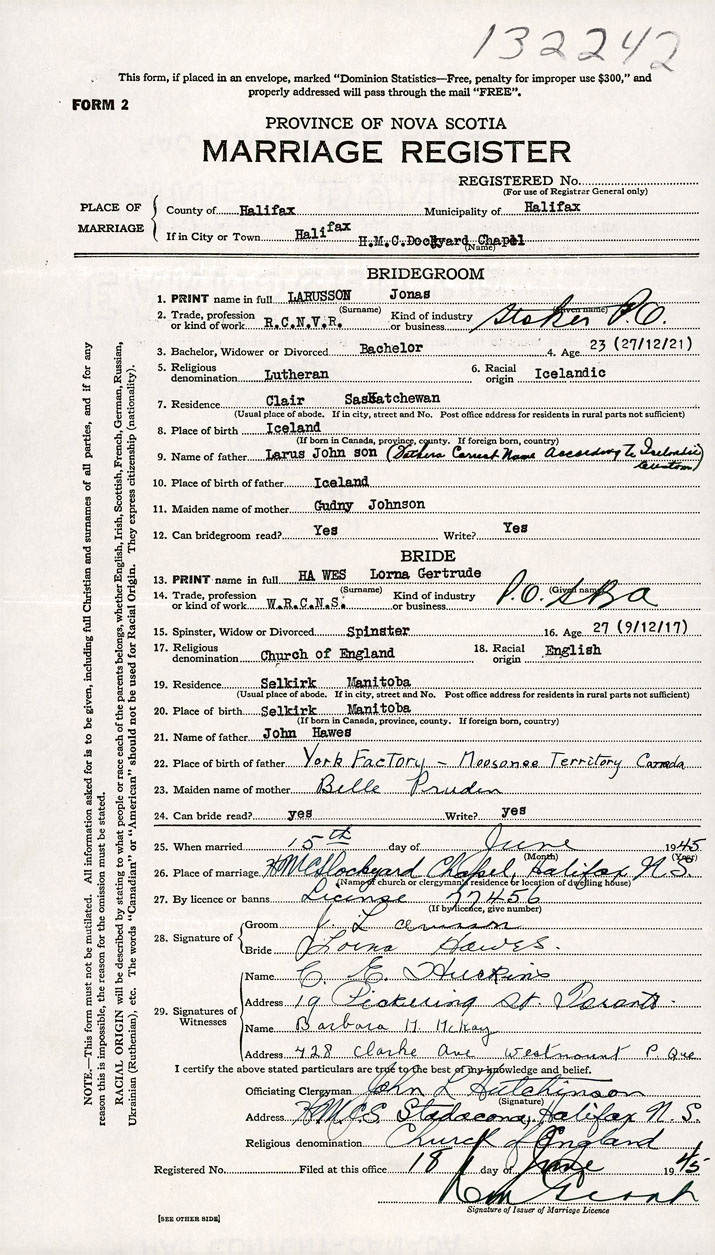 132242
This form, if placed in an envelope, marked “Dominion Statistics—Free, penalty for improper use $300,” and
properly addressed will pass through the mail “FREE”.
FORM 2
PROVINCE OF NOVA SCOTIA
MARRIAGE REGISTER
REGISTERED No.
(For use of Registrar General only)
PLACE OF MARRIAGE
County of Halifax Municipality of Halifax
If in City or Town Halifax H.M.C.Dockyard Chapel
(Name)
BRIDEGROOM
1. PRINT name in full LARUSSON Jonas
(Surname) (Given name)
2. Trade, profession or kind of work R.C.N.V.R. Kind of industry or business Stoker P.O.
3. Bachelor, Widower or Divorced Bachelor 4. Age 23 (27/12/21)
5. Religious denomination Lutheran 6. Racial origin Icelandic
7. Residence Clair Saskatchewan
(Usual place of abode. If in city, street and No. Post office address for residents in rural parts not sufficient)
8. Place of birth Iceland
(If born in Canada, province, county. If foreign born, country)
9. Name of father Larus John son (Fathers Correct Name According To Icelandic Custom)
10. Place of birth of father Iceland
11. Maiden name of mother Gudny Johnson
12. Can bridegroom read? Yes Write? Yes
BRIDE
13. PRINT name in full HA WES Lorna Gertrude
(Surname) (Given name)
14. Trade, profession or kind of work W.R.C.N.S. Kind of industry or business P.O. SBA
15. Spinster, Widow or Divorced Spinster 16. Age 27 (9/12/17)
17. Religious denomination Church of England 18. Racial origin English
19. Residence Selkirk Manitoba
(Usual place of abode. If in city, street and No. Post office address for residents in rural parts not sufficient)
20. Place of birth Selkirk Manitoba
(If born in Canada, province, county. If foreign born, country)
21. Name of father John Hawes
22. Place of birth of father York Factory - Moosonee Territory Canada
23. Maiden name of mother Belle Pruden
24. Can bride read? yes Write? yes
25. When married 15th day of June 1945
(Month) (Year)
26. Place of marriage HMC Dockyard Chapel, Halifax N.S.
(Name of church or clergyman's residence or location of dwelling house)
27. By licence or banns License 77456
(If by licence, give number)
28. Signature of
Groom J. Larusson
Bride Lorna Hawes.
29. Signatures of Witnesses
Name C. E. Huckins
Address 19 Pickering St. Toronto.
Name Barbara H. McKay
Address 428 Clarke Ave Westmount P Que
I certify the above stated particulars are true to the best of my knowledge and belief.
Officiating Clergyman John L Hutchinson
(Signature)
Address HMCS Stadacona, Halifax N.S.
Religious denomination Church of England
Registered No. Filed at this office 18 day of June 1945
Signature of Issuer of Marriage Licence
[SEE OTHER SIDE]
NOTE.—This form must not be mutilated. All information asked for is to be given, including full Christian and surnames of all parties, and if for any
reason this is impossible, the reason for the omission must be stated.
RACIAL ORIGIN will be described by stating to what people or race each of the parents belongs, whether English, Irish, Scottish, French, German, Russian,
Ukrainian (Ruthenian), etc. The words “Canadian” or “American” should not be used for Racial Origin. They express citizenship (nationality).